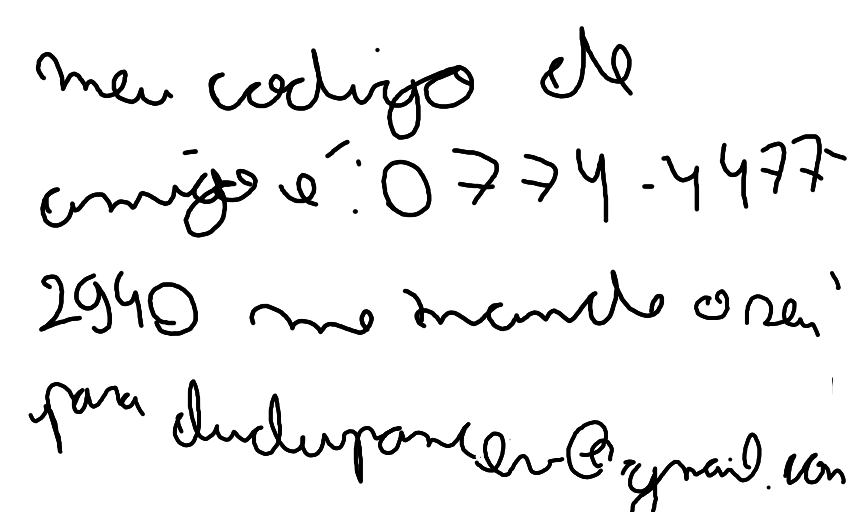 meu codigo de
amigo é: 0774-4477
2940 me mande o seu
para @gmail.com